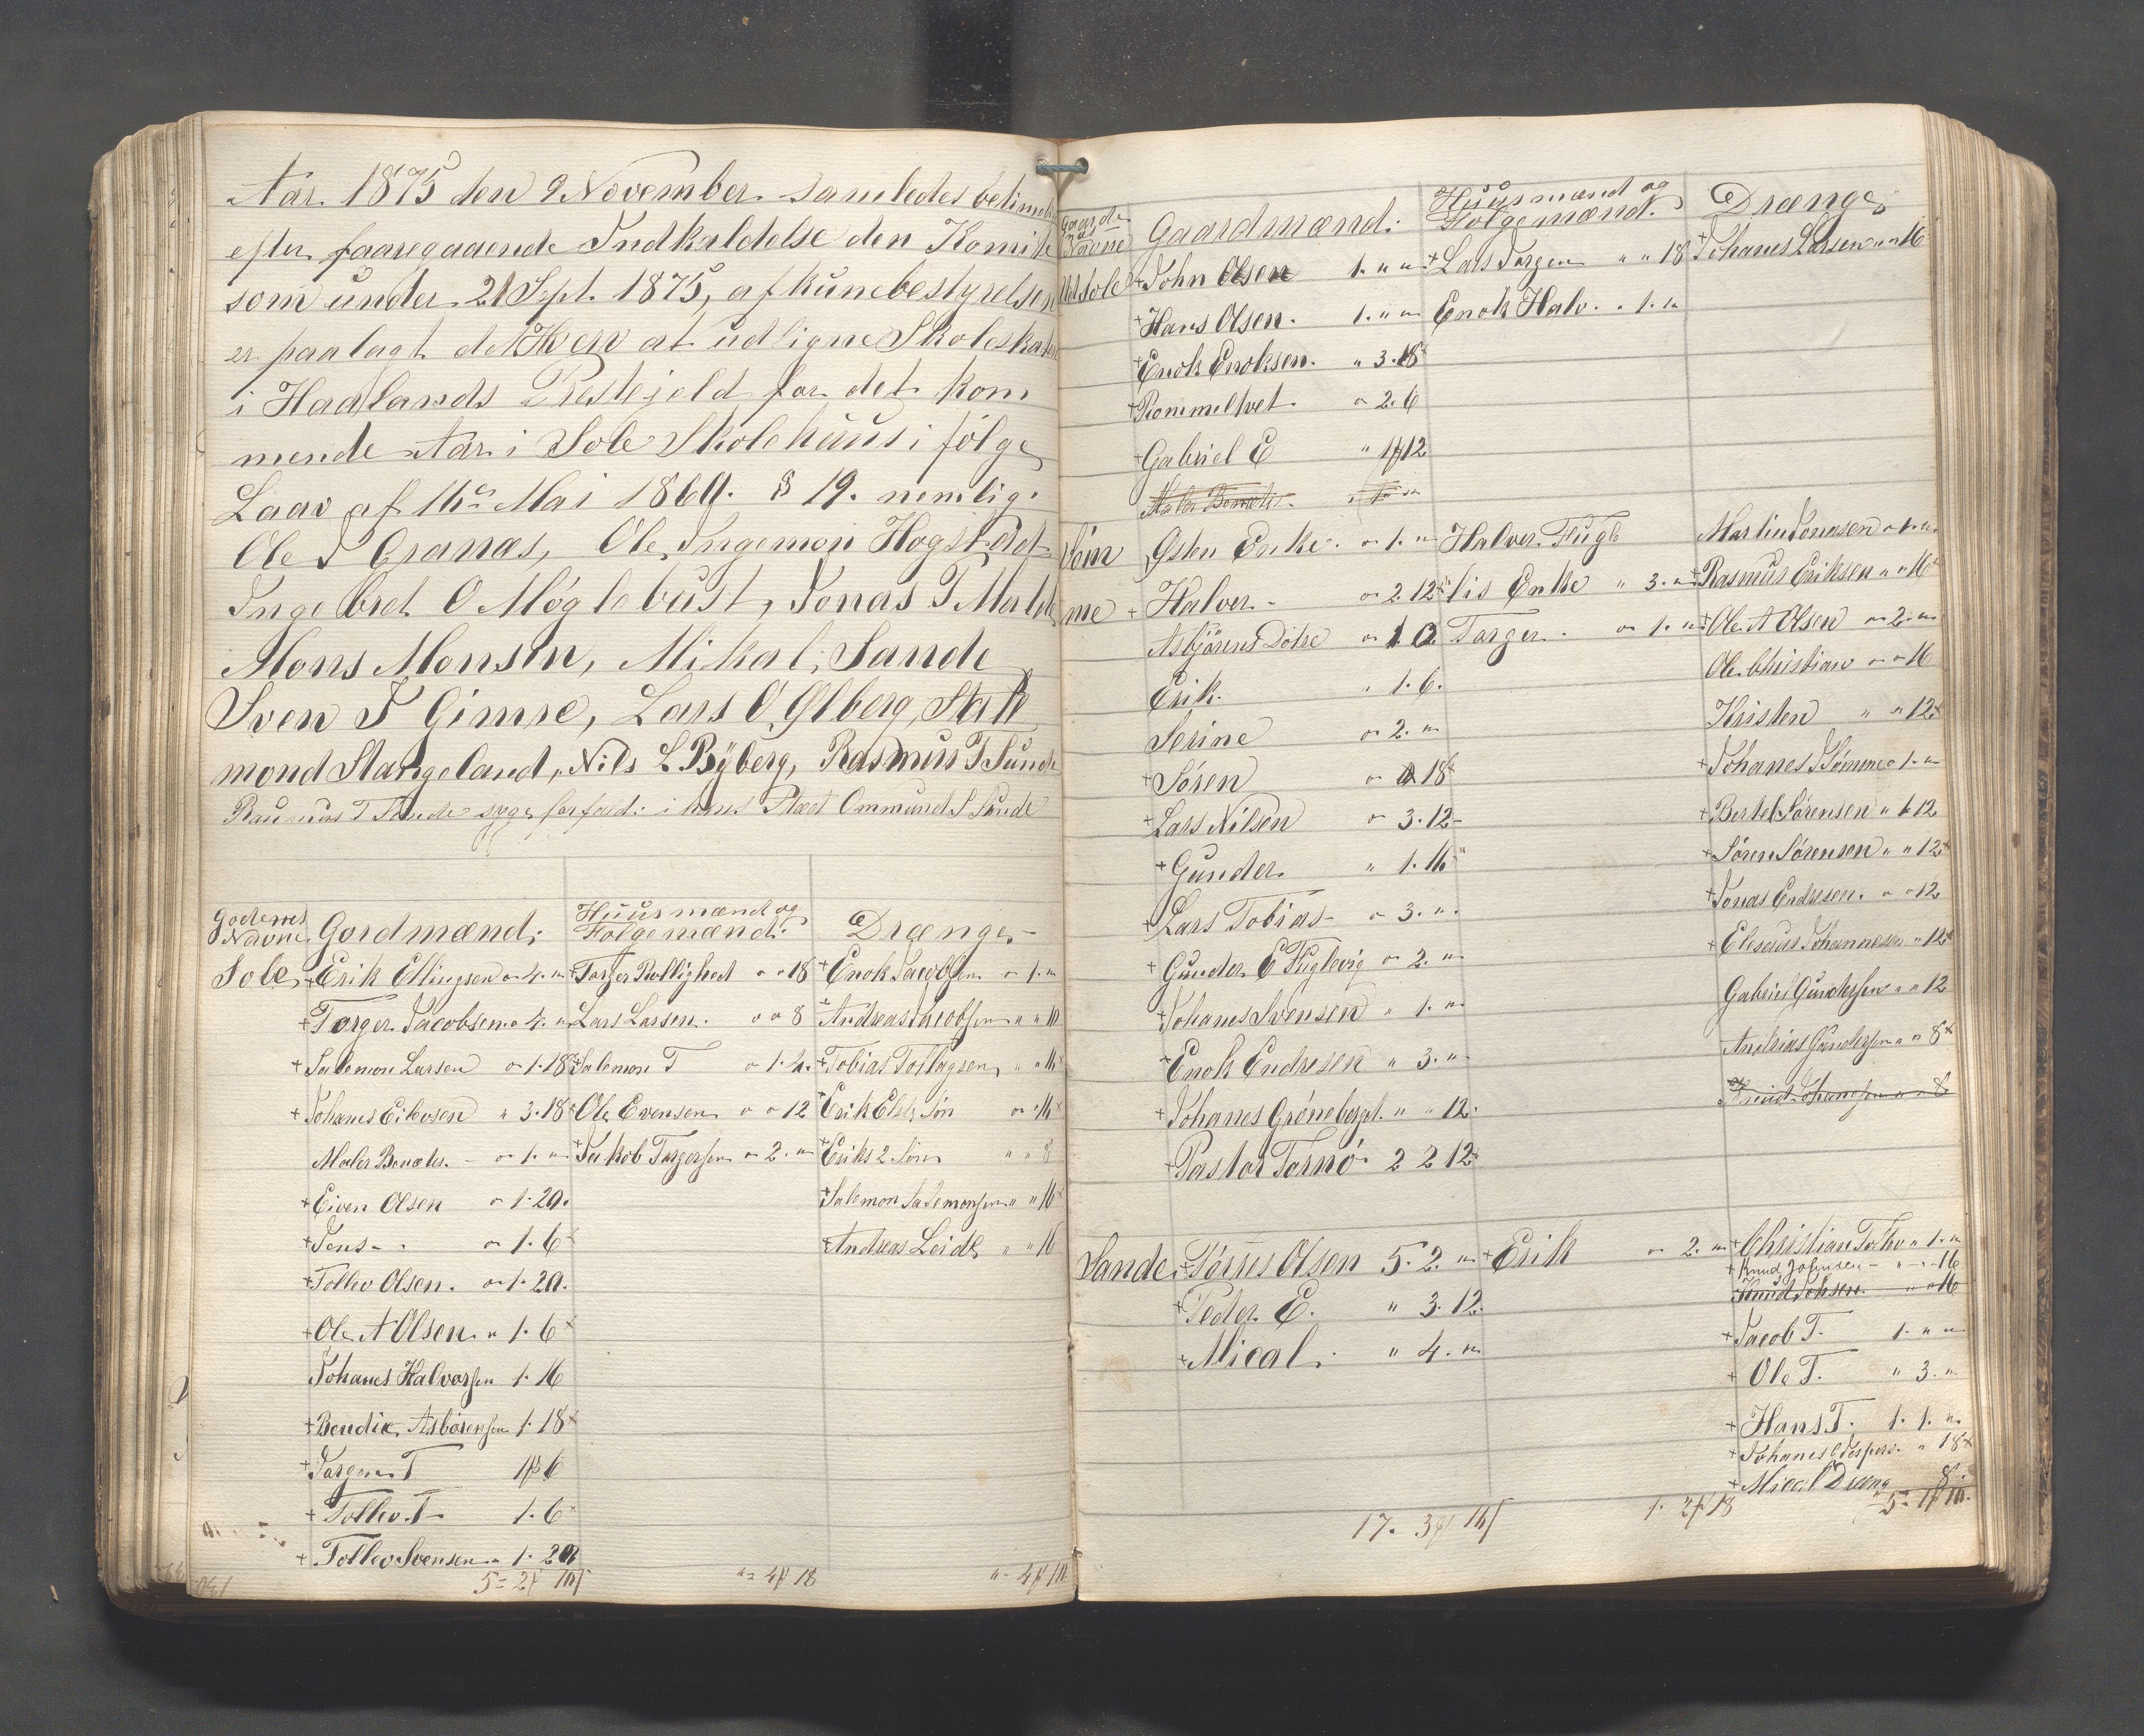 Aar 1875 den 9 November samledes betimelig
efter foaregaaende Indkaldelse den Komite
som under 21 Sept. 1875, af kunebestyrelsen
er paalagt det Hverv at udligne Skoleskaten
i Haalands Prestejeld for det kom
mende Aar i Sole Skolehuus i følge
Laav af 16de Mai 1860. § 19. nemlig.
Ole T Granæs, Ole Ingemon Hogstad
Ingebret O Møglebust, Jonas T Melde
Mons Monsen, Mikal Sande
Sven T Gimre, Lars O Ølberg, Stak
mond Stangeland, Nils L Byberg, Rasmus T Sunde
Rasmus T Sunde syge forfald: i hans Stæd Ommund S Sunde
Godernes Navne Gordmænd; Huusmænd og Følgemænd: Drænge,
Sole + Erik Ellingsen " 4. " + Torger Rollighed " " 18 + Enok Jacobsen " 1. "
+ Torger Jacobsen " 4. " Lars Larsen. " " 8 + Andreas Jacobsen " " 16
+ Salemon Larsen " 1. 18 + Salemon T " 1. 4. + Tobias Tollagsen " " 16
+ Johanes Eilevsen " 3. 18 + Ole Evensen " " 12 + Erik Elds Søn " " 16
Maler Benæts. " 1. " + Jakob Torgersen " 2. " + Eriks 2 Søn " " 8
+ Eiven Olsen " 1. 20. + Salemon Salemonsen " " 16
+ Jens " 1. 6 + Andreas Leids " " 16
+ Tollev Olsen. " 1. 20.
+ Ole A Olsen " 1. 6
Johanes Halvorsen 1. 16
+ Bendix Asbørensen 1. 18
+ Torger T 1 6
+ Tollev T 1. 6
+ Tollev Svensen " 1. 20
5 = 2 16 " = 4 18 " - 4 10
Gaardenes Navne Gaardmænd: Huusmænd og Følgemænd. Drænge
Sole + John Olsen 1. " " + Lars Torger " " 18 Johanes Larsen " " 16
+ Hans Olsen. 1. " " Enok Halv. " 1. "
+ Enok Enoksen. " 3. 18
+ Rommeltvet " 2. 6
+ Gabriel E " 1 12
Maler Benæts. " 1 "
Søm Østen Enke. " 1. " Halver Fugle Martin Jonasen " 1. "
me + Halver " 2. 12 vis Enke " 3. " + Rasmus Eriksen " " 16
Asbjørens Dotre " 1 0 Torger. " 1. " + Ole A Olsen " 2. "
Erik. " 1. 6. Ole Christian " " 16
Serine " 2. " Kristen " " 12
+ Søren " 18 + Johanes J Sømme " 1. "
+ Lars Nilsen " 3. 12 + Bertel Sørensen " 1 12
+ Gunder " 1. 16 + Søren Sørensen " " 12
+ Lars Tobias " 3. " + Jonas Endresen. " " 12
+ Gunder E Fuglevig " 2. " + Eleseus Johannesen " 12
+ Johanes Svensen " 1. " Gabriel Gundersen " " 12
+ Enok Endresen " 3. " Andrias Gundersen " " 8
+ Johanes Grøneberget. " " 12. Knud Johansen " " 8
+ Pastor Tornø 2 2 12
Sande + Tørris Olsen 5. 2. " + Erik " 2. " + Christian Tollev " 1. "
+ Knud Johnsen " " 16
Knud Johsen. " " 16
+ Peder E. " 3. 12. + Jacob T. 1. " "
+ Mical. " 4. " + Ole T. " 3. "
+ Hans T. 1. 1. "
+ Johanes Jespers. " 18
+ Mical Dreng 8
17. 3 16 1. 2 18 5 = 1 10.